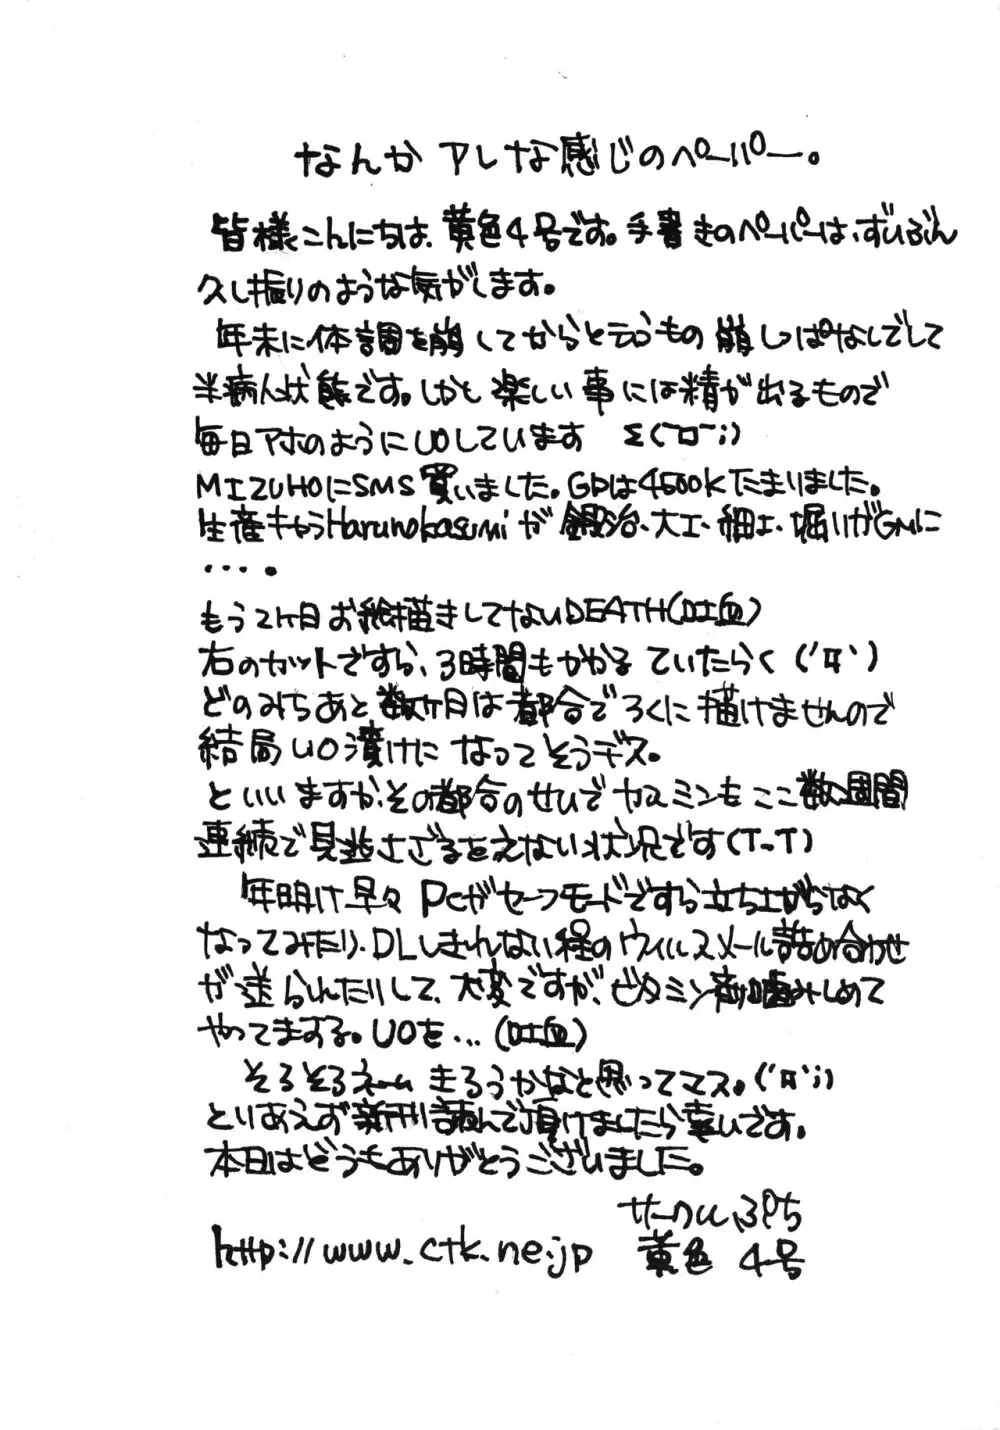 なんかアレな感じのペーパー。
皆様こんにちは、黄色4号です。手書きのペーパーは、ずいぶん
久し振りのような気がします。
年末に体調を崩してからと言うもの崩しっぱなしでして
半病人状態です。しかし楽しい事には精が出るもので
毎日アホのようにUOしています Σ(￣□￣;)
MIZUHOにSMS買いました。GPは4500Kたまりました。
生産キャラHarunokasumiが鍛冶、大工、細工、掘りがGMに
・・・。
もう2ケ月お絵描きしてないDEATH(吐血)
右のカットですら、3時間もかかるていたらく(´Д`)
どのみちあと数ケ月は都合でろくに描けませんので
結局UO漬けになってそうデス。
といいますか、その都合のせいでヤスミンもここ数週間
連続で見逃さざるをえない状況です(T-T)
年明け早々PCがセーフモードですら立ち上がらなく
なってみたり、DLしきれない程のウィルスメール詰め合わせ
が送られたりして、大変ですが、ビタミン剤噛みしめて
やってますよ。UOを…(吐血)
そろそろネームきろうかなと思ってマス。(´Д`;)
とりあえず新刊読んで頂けましたら幸いです。
本日はどうもありがとうございました。
サークルぷち
http://www.ctk.ne.jp 黄色4号